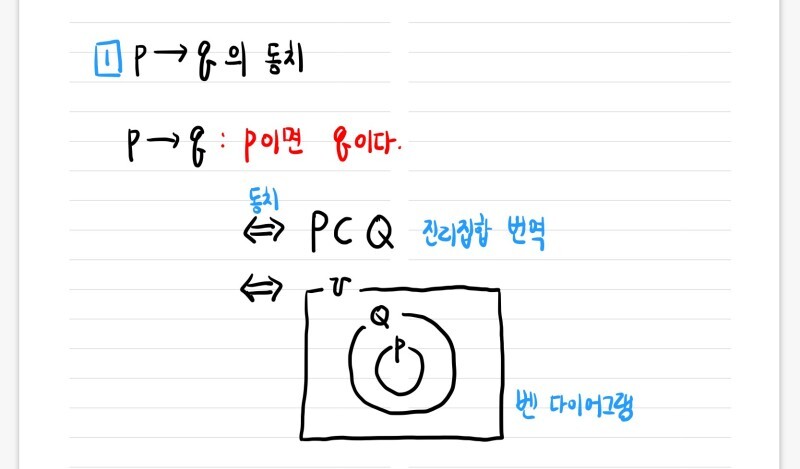 1 p → q의 동치
p → q : p이면 q이다.
동치
⇔ P⊂Q 진리집합 번역
⇔ U
Q
P
벤 다이어그램